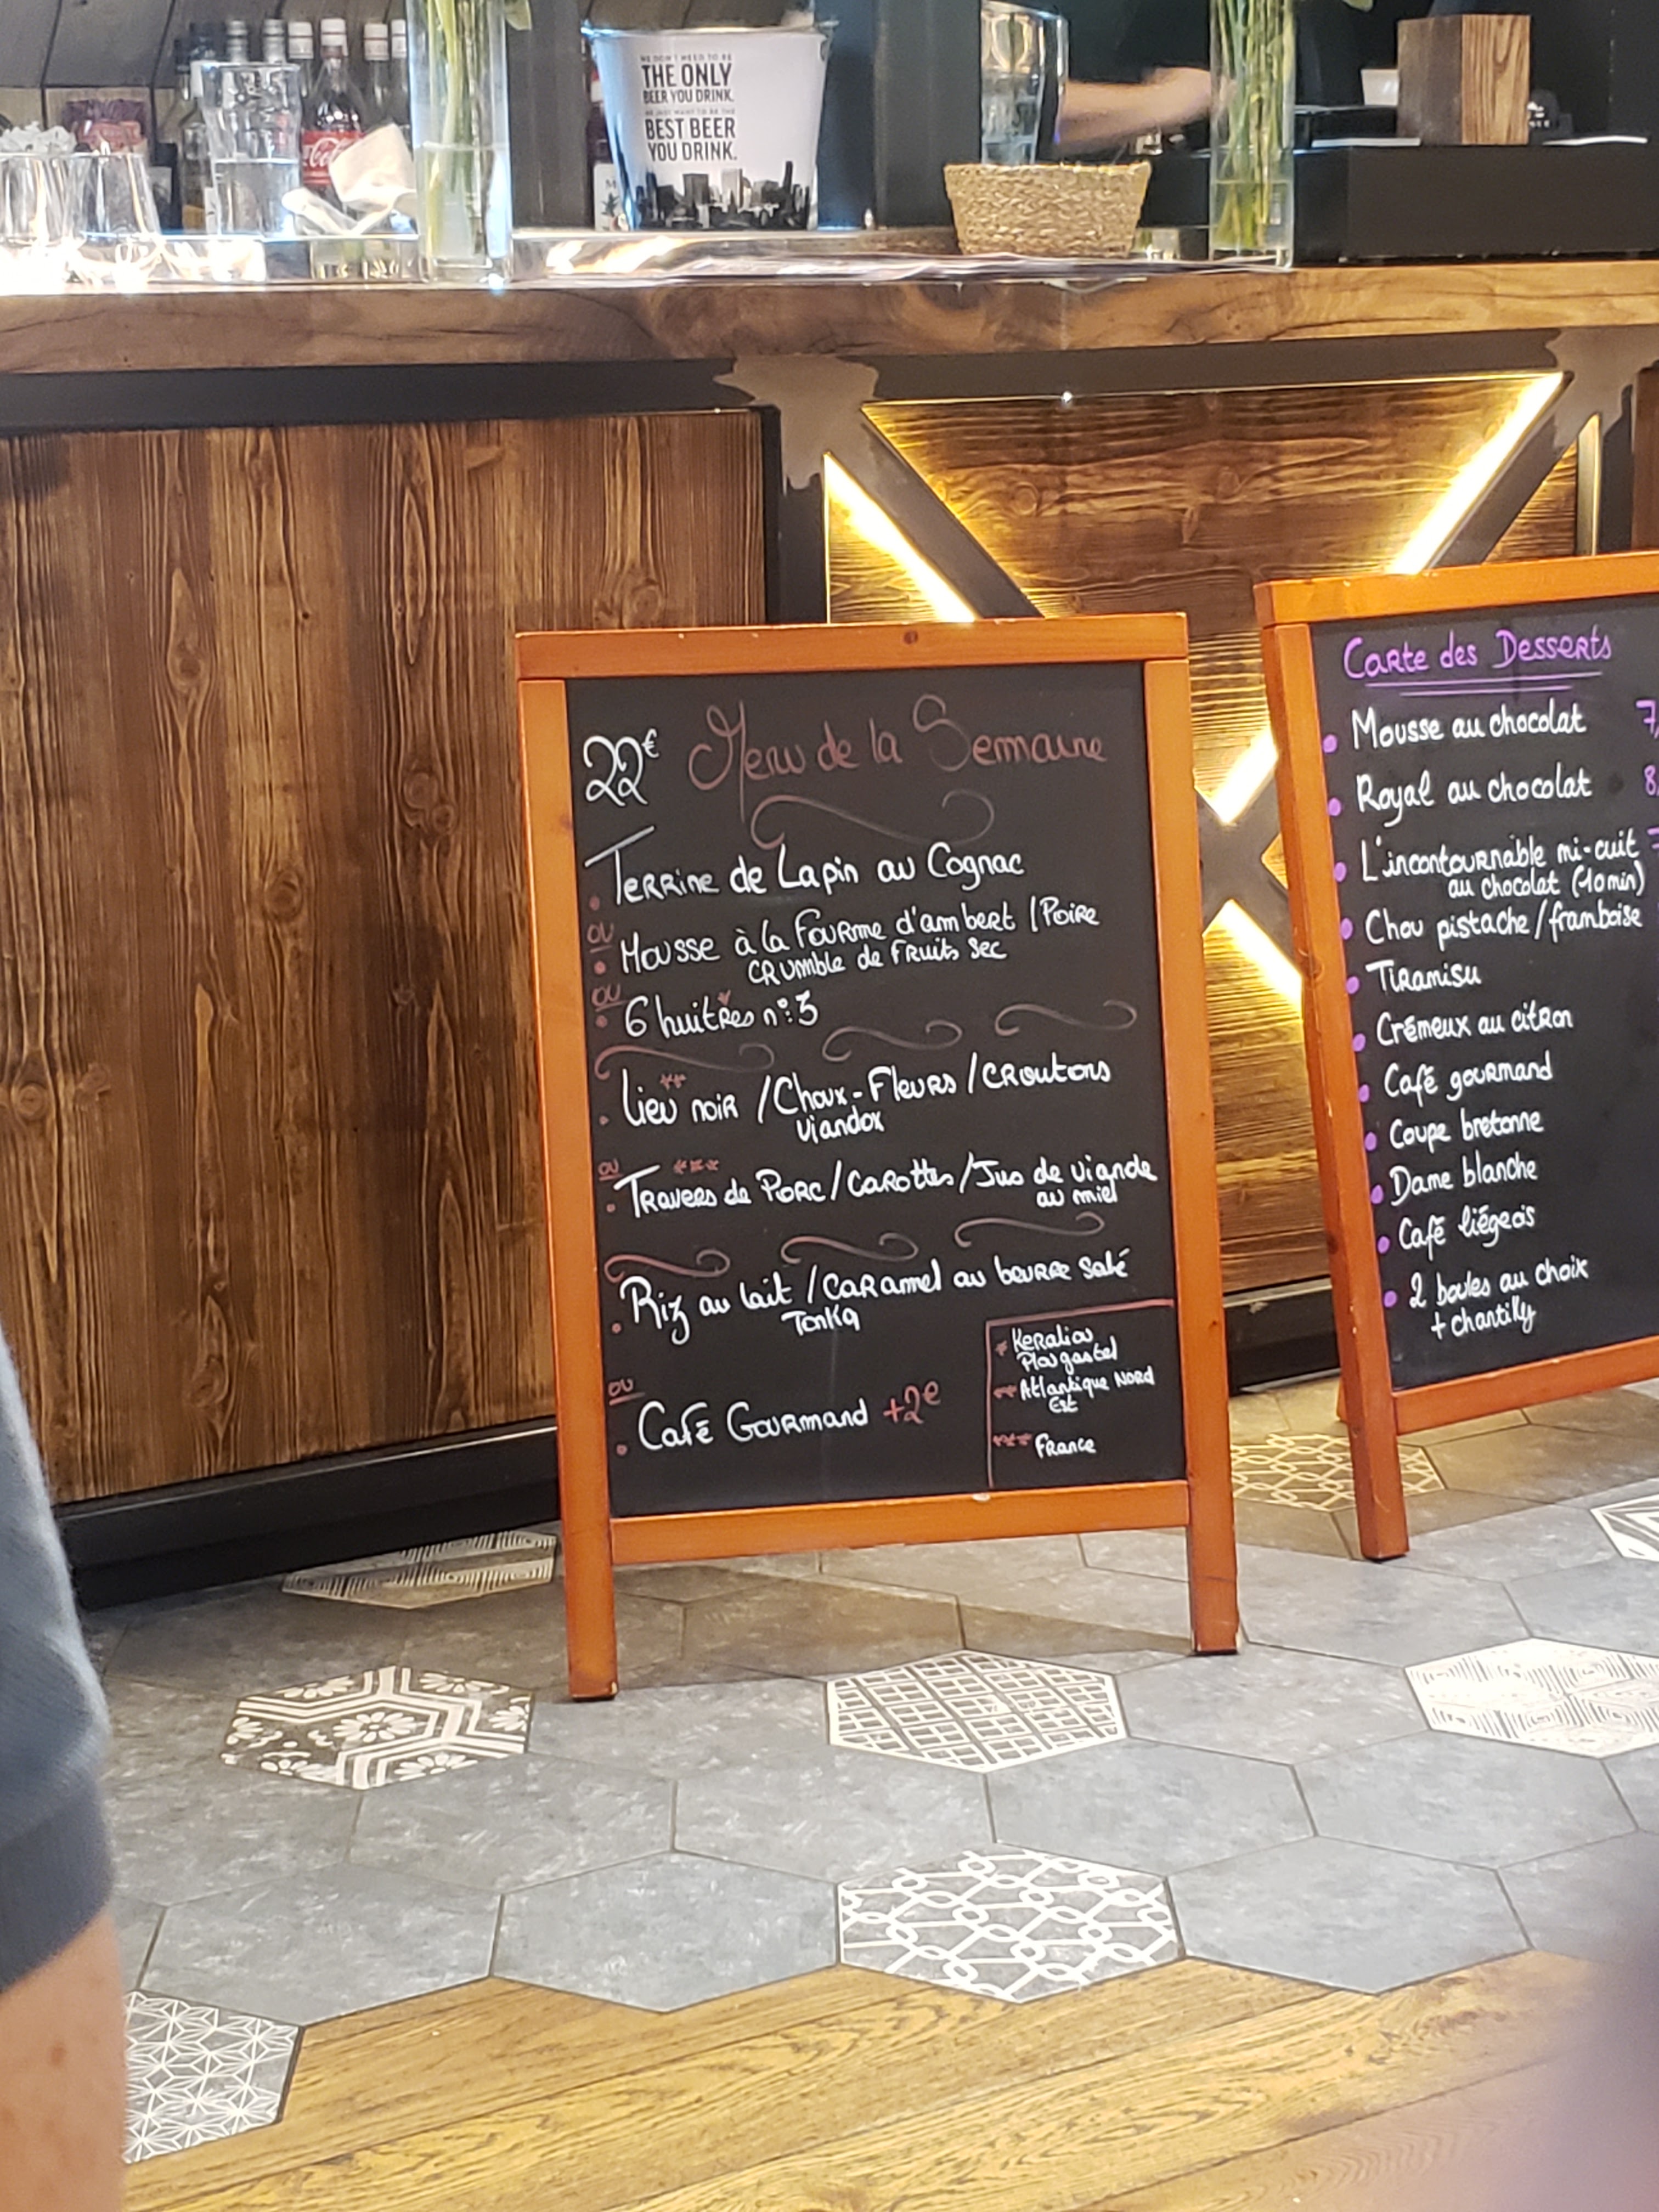 WE DON'T NEED TO BE
THE ONLY
BEER YOU DRINK.
WE JUST WANT TO BE THE
BEST BEER
YOU DRINK.
Coca-Cola
22€ Menu de la Semaine
Terrine de Lapin au Cognac
ou
Mousse à la Fourme d'ambert / Poire
crumble de Fruits sec
ou
6 huitres* n°:3
Lieu** noir / Choux-Fleurs / croutons
viandox
ou ***
Travers de Porc / carottes / Jus de viande
au miel
Riz au lait / caramel au beurre salé
Tonka
ou
Café Gourmand +2€
* Keraliou
Plougastel
** Atlantique Nord
Est
*** France
Carte des Desserts
Mousse au chocolat 7,
Royal au chocolat 8,
L'incontournable mi-cuit 7
au chocolat (10min)
Chou pistache / framboise
Tiramisu
Crémeux au citron
Café gourmand
Coupe bretonne
Dame blanche
Café liégeois
2 boules au choix
+ chantilly